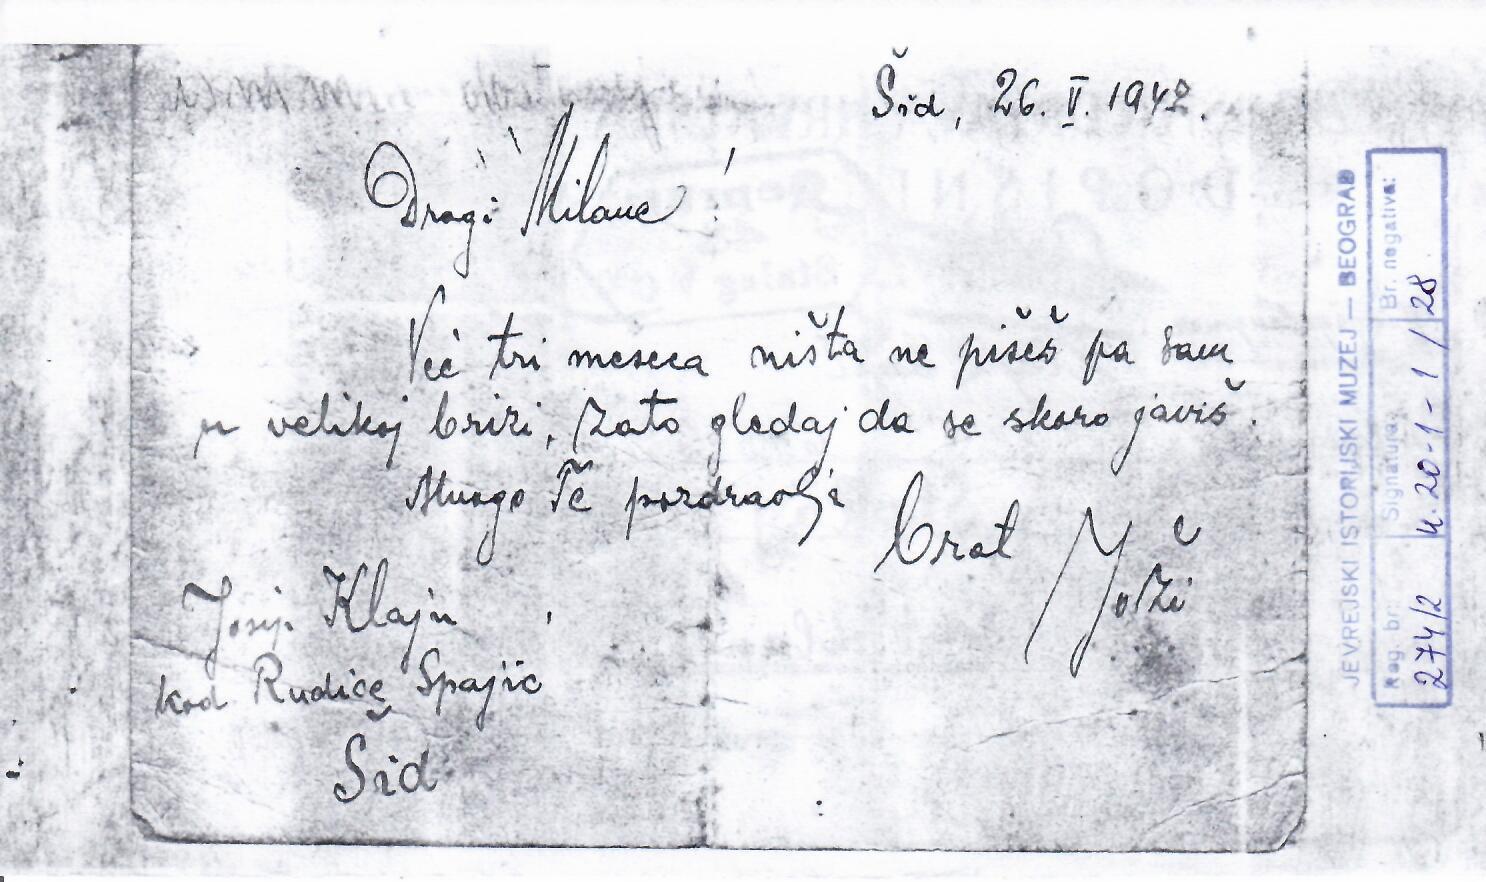 Šid, 26. V. 1942.
Dragi Milane!
Već tri meseca ništa ne pišeš pa sam
u velikoj brizi, zato gledaj da se skoro javiš.
Mnogo Te pozdravlja
brat Joži
Josip Klajn
kod Rudice Spajić
Šid
JEVREJSKI ISTORIJSKI MUZEJ — BEOGRAD
Reg. br: Signatura: Br. negativa:
274/2 k. 20-1-1/28.